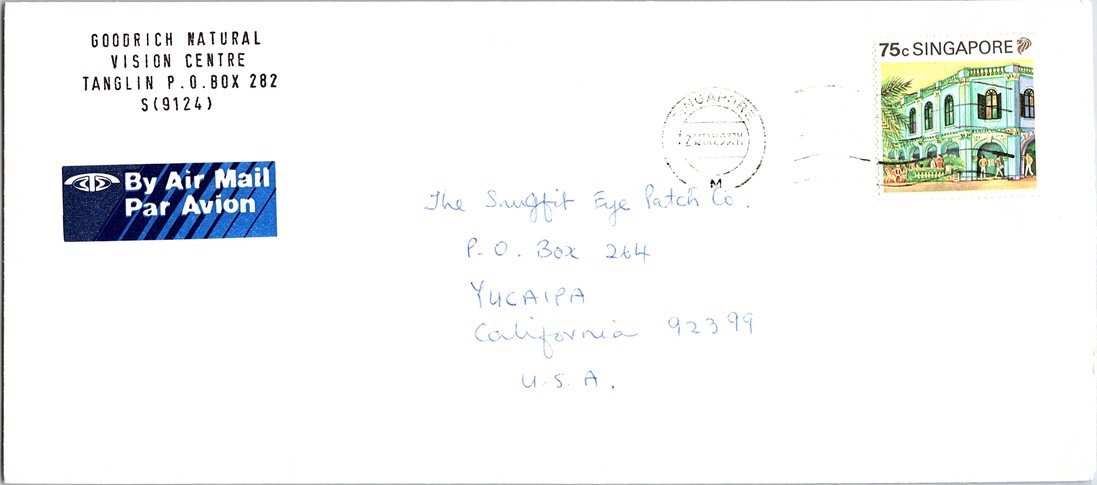 GOODRICH NATURAL
VISION CENTRE
TANGLIN P.O.BOX 282
S(9124)
75c SINGAPORE
SINGAPORE
M
By Air Mail
Par Avion
The Snugfit Eye Patch Co.
P.O. Box 264
YUCAIPA
California 92399
U.S.A.